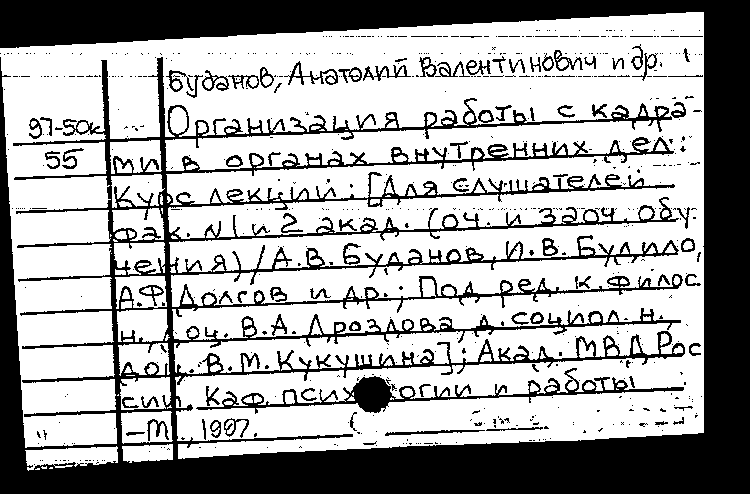 Буданов, Анатолий Валентинович и др.
97-50к Организация работы с кадра-
55 ми в органах внутренних дел:
Курс лекций: [Для слушателей
фак. №1 и 2 акад. (оч. и заоч. обу-
чения) / А.В. Буданов, И.В. Будило,
А.Ф. Долгов и др.; Под ред. к. филос.
н., доц. В.А. Дроздова, д. социол. н.,
доц. В.М. Кукушина]; Акад. МВД Рос
сии. Каф. псих огии и работы
-М., 1997.